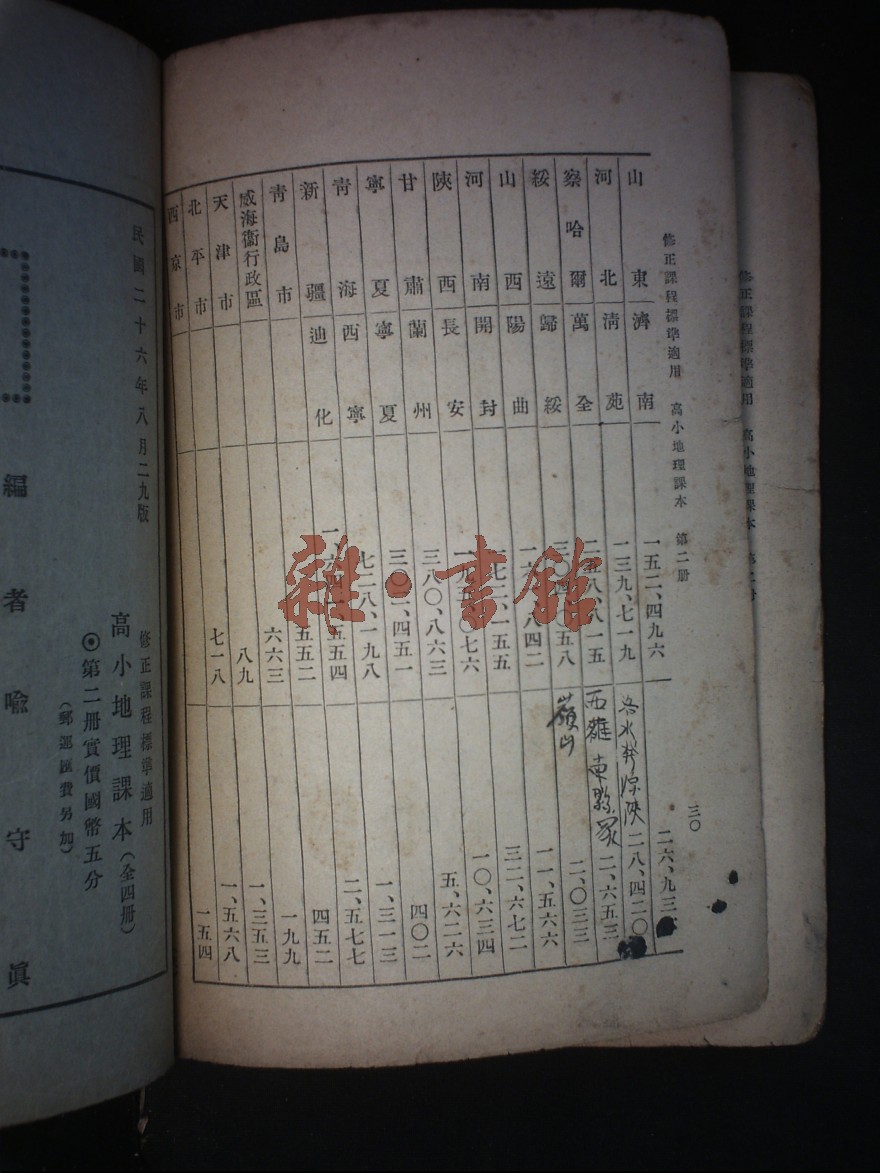 修正課程標準適用 高小地理課本 第二册
三〇
山東 濟南 一五二、四九六 二六、九三
河北 清苑 一三九、七一九 二八、四二〇
察哈爾 萬全 二五八、八一五 二、六五三
綏遠 歸綏 五八 二、〇三三
山西 陽曲 八四二 一一、五六六
河南 開封 一五五 三二、六七二
陝西 長安 七六 一〇、六三四
甘肅 蘭州 三八〇、八六三 五、六二六
寧夏 寧夏 三〇二、四五一 四〇二
青海 西寧 七二八、一九八 一、三一三
新疆 迪化 五五四 二、五七七
青島市 五五二 四五二
威海衞行政區 六六三 一九九
天津市 八九 一、三五三
北平市 七一八 一、五六八
西京市 一五四
嶺山
雜·書館
修正課程標準適用 高小地理課本
民國二十六年八月二九版
修正課程標準適用
高小地理課本(全四册)
◉第二册實價國幣五分
(郵運匯費另加)
編者 喩守眞